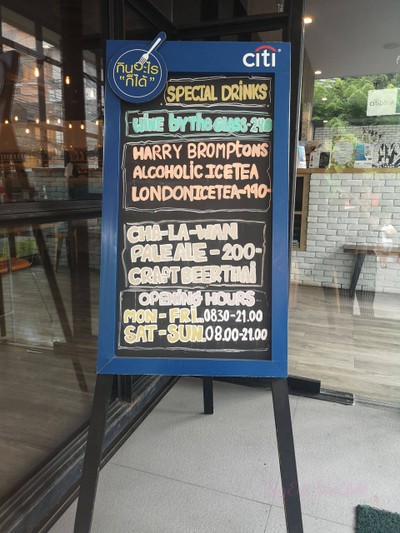 กินอะไร
"ก็ได้"
citi
SPECIAL DRINKS
WINE BY THE GLASS-290
HARRY BROMPTONS
ALCOHOLIC ICETEA
LONDONICETEA-190-
CHA-LA-WAN
PALE ALE - 200-
CRAFT BEER THAI
OPENING HOURS
MON - FRI..0830-21.00
SAT-SUN..08.00-21.00